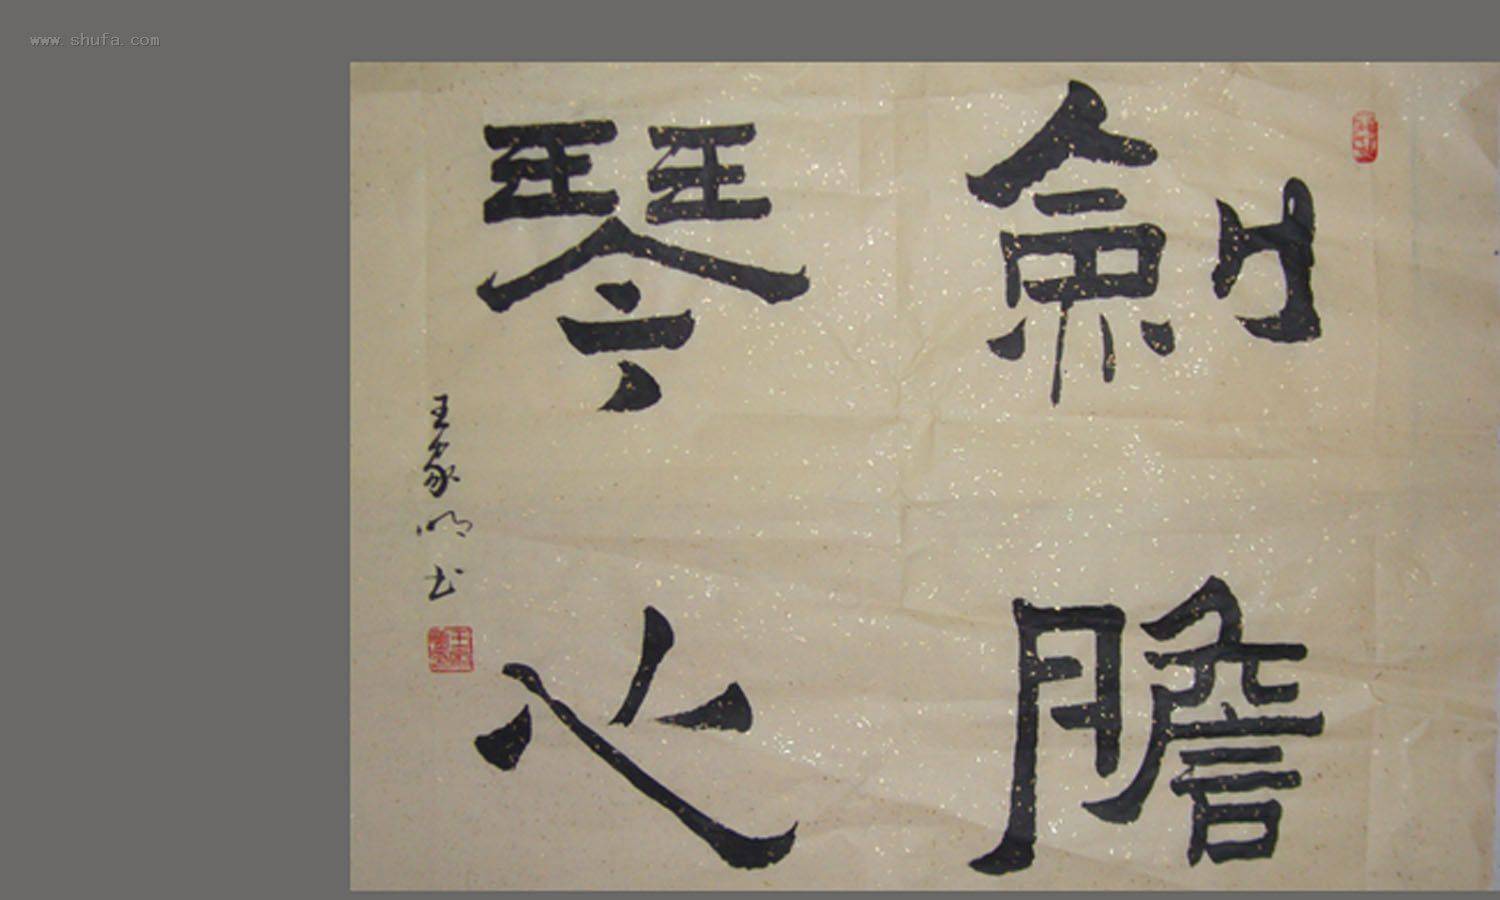 www.shufa.com
劍膽
琴心
王家明书